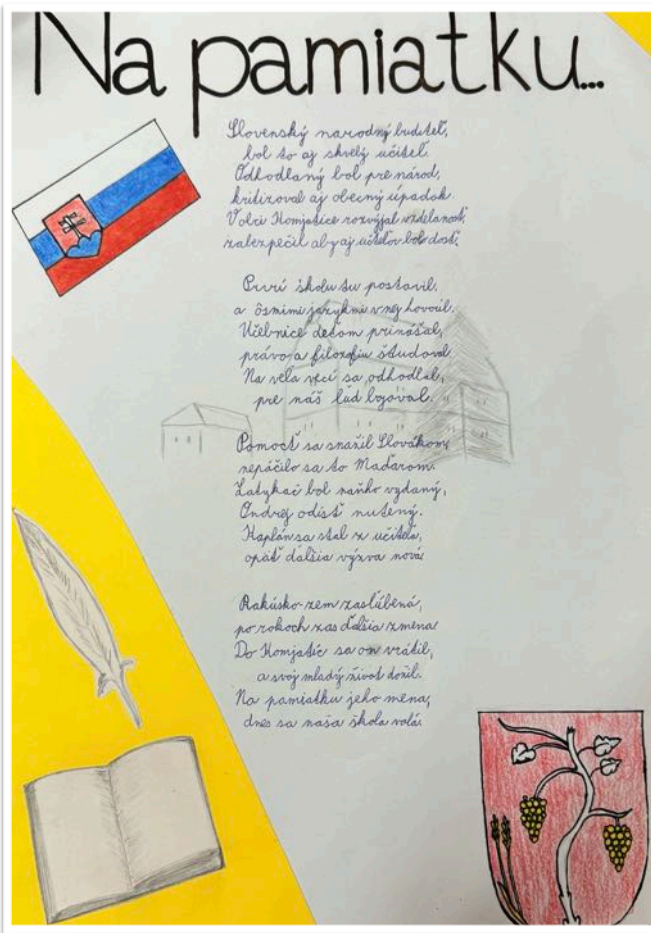 Na pamiatku...
Slovenský narodný buditeľ,
bol to aj skvelý učiteľ.
Odhodlaný bol pre národ,
kritizoval aj obecný úpadok.
V obci Komjatice rozvýjal vzdelanosť,
zabezpečil aby aj učiteľov bolo dosť.
Prvú školu tu postavil,
a ôsmimi jazykmi v nej hovoril.
Učebnice deťom prinášal,
právo a filozofiu študoval.
Na veľa vecí sa odhodlal,
pre náš ľud bojoval.
Pomocť sa snažil Slovákom,
nepáčilo sa to Maďarom.
Zatykač bol naňho vydaný,
Ondrej odísť nutený.
Kaplán sa stal z učiteľa,
opäť ďalšia výzva nová.
Rakúsko-zem zasľúbená,
po rokoch zas ďalšia zmena.
Do Komjatíc sa on vrátil,
a svoj mladý život dožil.
Na pamiatku jeho mena,
dnes sa naša škola volá.